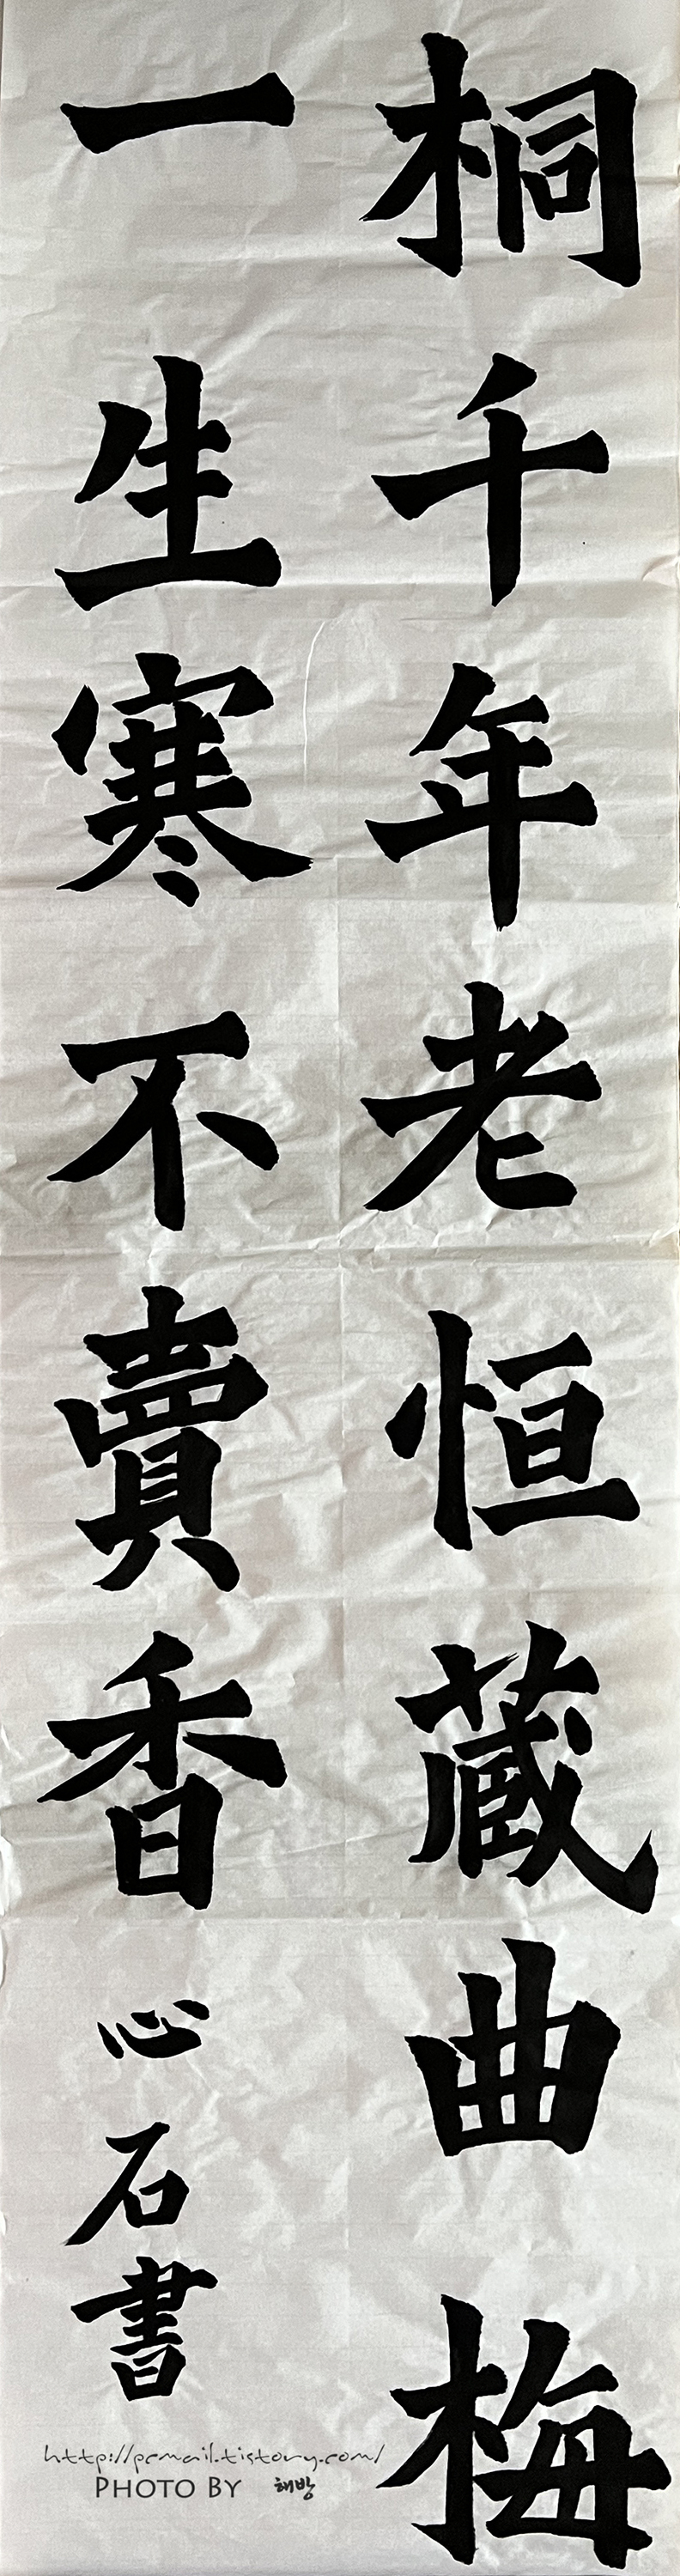 桐千年老恒蔵曲梅
一生寒不賣香
心石書
http://pcmail.tistory.com/
PHOTO BY 해방